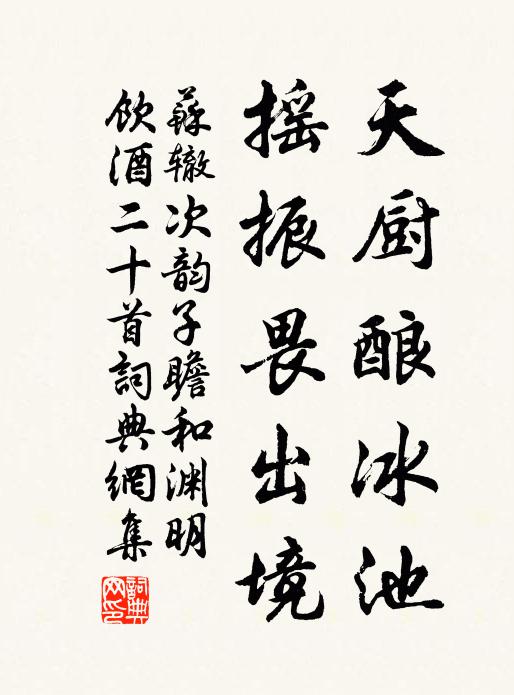 天厨酿冰池
摇振畏出境
蘇辙次韵子瞻和渊明
飲酒二十首詞典網集
詞典网印